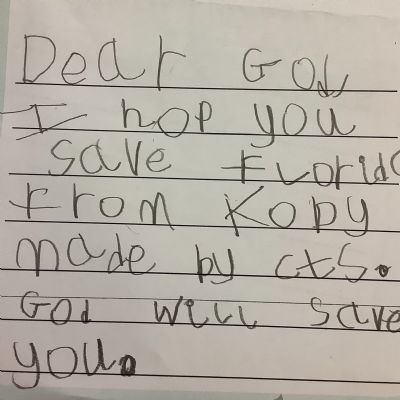 Dear God
I hop you
save fworld
from Kopy
made by cts.
God will save
you.